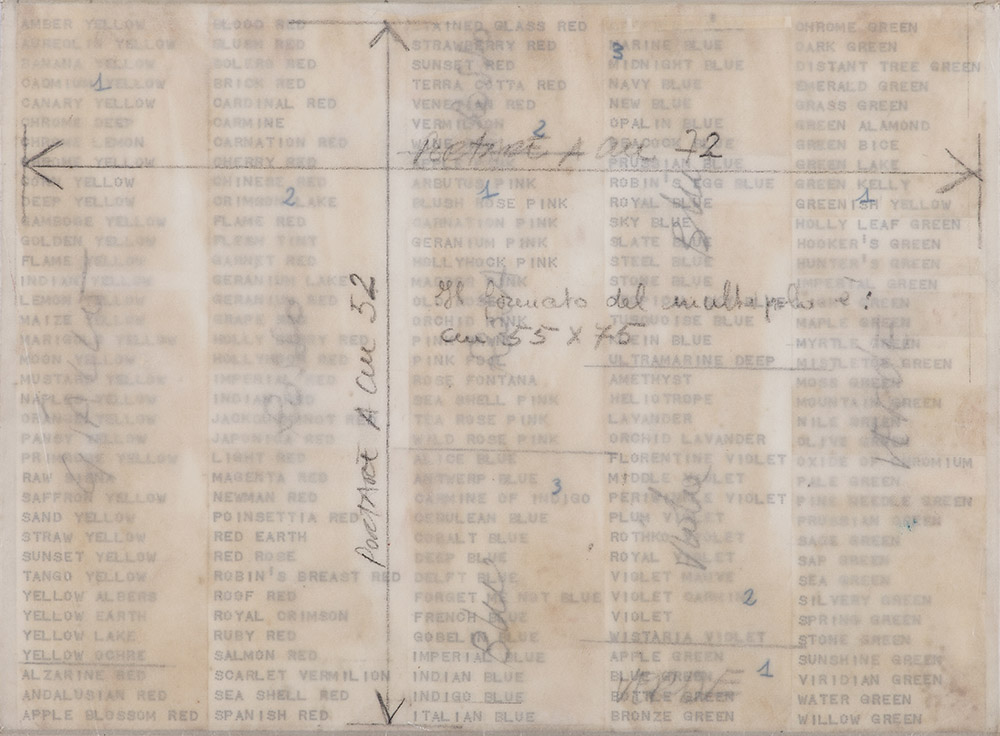 AMBER YELLOW
AUREOLIN YELLOW
BANANA YELLOW
CADMIUM YELLOW
1
CANARY YELLOW
CHROME DEEP
CHROME LEMON
CHROME YELLOW
CORN YELLOW
DEEP YELLOW
GAMBOGE YELLOW
GOLDEN YELLOW
FLAME YELLOW
INDIAN YELLOW
LEMON YELLOW
MAIZE YELLOW
MARIGOLD YELLOW
MOON YELLOW
MUSTARD YELLOW
NAPLES YELLOW
ORANGE YELLOW
PANSY YELLOW
PRIMROSE YELLOW
RAW SIENA
SAFFRON YELLOW
SAND YELLOW
STRAW YELLOW
SUNSET YELLOW
TANGO YELLOW
YELLOW ALBERS
YELLOW EARTH
YELLOW LAKE
YELLOW OCHRE
ALZARINE RED
ANDALUSIAN RED
APPLE BLOSSOM RED
BLOOD RED
BLUSH RED
BOLERO RED
BRICK RED
CARDINAL RED
CARMINE
CARNATION RED
CHERRY RED
CHINESE RED
CRIMSON LAKE
2
FLAME RED
FLESH TINT
GARNET RED
GERANIUM LAKE
GERANIUM RED
GRAPE RED
HOLLY BERRY RED
HOLLYHOCK RED
IMPERIAL RED
INDIAN RED
JACQUEMINOT RED
JAPONICA RED
LIGHT RED
MAGENTA RED
NEWMAN RED
POINSETTIA RED
RED EARTH
RED ROSE
ROBIN'S BREAST RED
ROOF RED
ROYAL CRIMSON
RUBY RED
SALMON RED
SCARLET VERMILION
SEA SHELL RED
SPANISH RED
PORTARE A CM 52
STAINED GLASS RED
STRAWBERRY RED
SUNSET RED
TERRA COTTA RED
VENETIAN RED
VERMILION
2
WINE
Portare A cm 72
ARBUTUS PINK
1
BLUSH ROSE PINK
CARNATION PINK
GERANIUM PINK
HOLLYHOCK PINK
PINK
Il formato del multiplo è:
ORCHID PINK
cm 55 x 75
PINK
ROSE FONTANA
SEA SHELL PINK
TEA ROSE PINK
WILD ROSE PINK
ALICE BLUE
ANTWERP BLUE
3
CARMINE OF INDIGO
CERULEAN BLUE
COBALT BLUE
DEEP BLUE
DELFT BLUE
FORGET ME NOT BLUE
FRENCH BLUE
GOBELIN BLUE
IMPERIAL BLUE
INDIAN BLUE
INDIGO BLUE
ITALIAN BLUE
MARINE BLUE
3
MIDNIGHT BLUE
NAVY BLUE
NEW BLUE
OPALIN BLUE
PEACOCK BLUE
PRUSSIAN BLUE
ROBIN'S EGG BLUE
ROYAL BLUE
SKY BLUE
SLATE BLUE
STEEL BLUE
STONE BLUE
TURQUOISE BLUE
BLUE
ULTRAMARINE DEEP
AMETHYST
HELIOTROPE
LAVANDER
ORCHID LAVANDER
FLORENTINE VIOLET
MIDDLE VIOLET
PERIWINKLE VIOLET
PLUM VIOLET
ROTHKO VIOLET
ROYAL VIOLET
VIOLET MAUVE
VIOLET CARMINE
2
VIOLET
WISTARIA VIOLET
APPLE GREEN
1
BLUE GREEN
BOTTLE GREEN
BRONZE GREEN
CHROME GREEN
DARK GREEN
DISTANT TREE GREEN
EMERALD GREEN
GRASS GREEN
GREEN ALAMOND
GREEN BICE
GREEN LAKE
GREEN KELLY
1
GREENISH YELLOW
HOLLY LEAF GREEN
HOOKER'S GREEN
HUNTER'S GREEN
IMPERIAL GREEN
GREEN
MAPLE GREEN
MYRTLE GREEN
MISTLETOE GREEN
MOSS GREEN
MOUNTAIN GREEN
NILE GREEN
OLIVE GREEN
OXIDE OF CHROMIUM
PALE GREEN
PINE NEEDLE GREEN
PRUSSIAN GREEN
SAGE GREEN
SAP GREEN
SEA GREEN
SILVERY GREEN
SPRING GREEN
STONE GREEN
SUNSHINE GREEN
VIRIDIAN GREEN
WATER GREEN
WILLOW GREEN